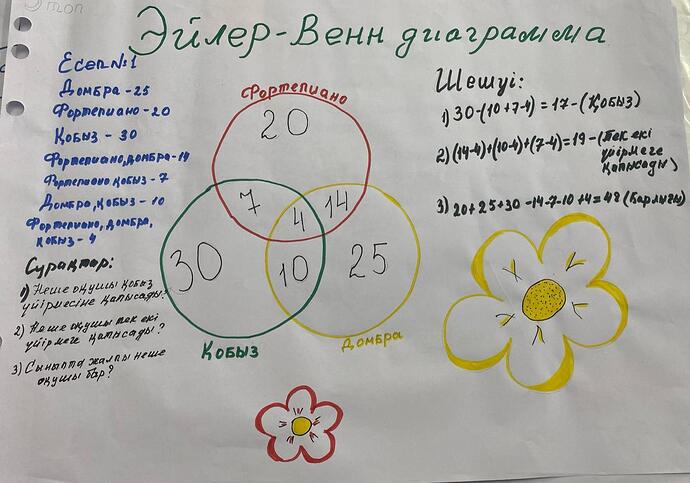 Этоп
Эйлер-Венн диограмма
Есеп №1
Домбра - 25
Фортепиано - 20
Қобыз - 30
Фортепиано, домбра - 14
Фортепиано қобыз - 7
Домбра, қобыз - 10
Фортепиано, домбра,
қобыз - 4
Сурақтар:
1) Неше оқушы қобыз
үйірмесіне қатысады?
2) Неше оқушы тек екі
үйірмеге қатысады?
3) Сыныпта жалпы неше
оқушы бар?
Фортепиано
20
7
4
14
30
10
25
Қобыз
Домбра
Шешуі:
1) 30-(10+7-4)=17-(Қобыз)
2) (14-4)+(10-4)+(7-4)=19-(тек екі
үйірмеге
қатысады)
3) 20+25+30-14-7-10+4=48 (Барлығы)